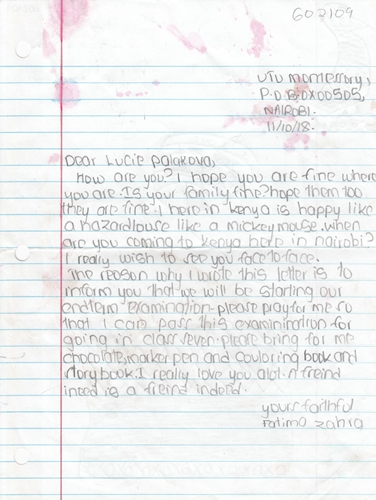 602109
UTU montessory,
P.O BOX 00505,
NAIROBI.
11/10/18.
Dear Lucie palakova,
How are you? I hope you are fine where
you are. Is your family fine? hope them too
they are fine. I here in kenya is happy like
a hazardlouse like a mickey mouse. when
are you coming to kenya here in nairobi?
I really wish to see you face to face.
The reason why I wrote this letter is to
inform you that we will be starting our
endterm examination. please pray for me so
that I can pass this examinination for
going in class seven. please bring for me
chocolate, marker pen and couloring book and
story book. I really love you alot. A freind
ineed is a freind indeed.
yours faithful
Fatima zahra